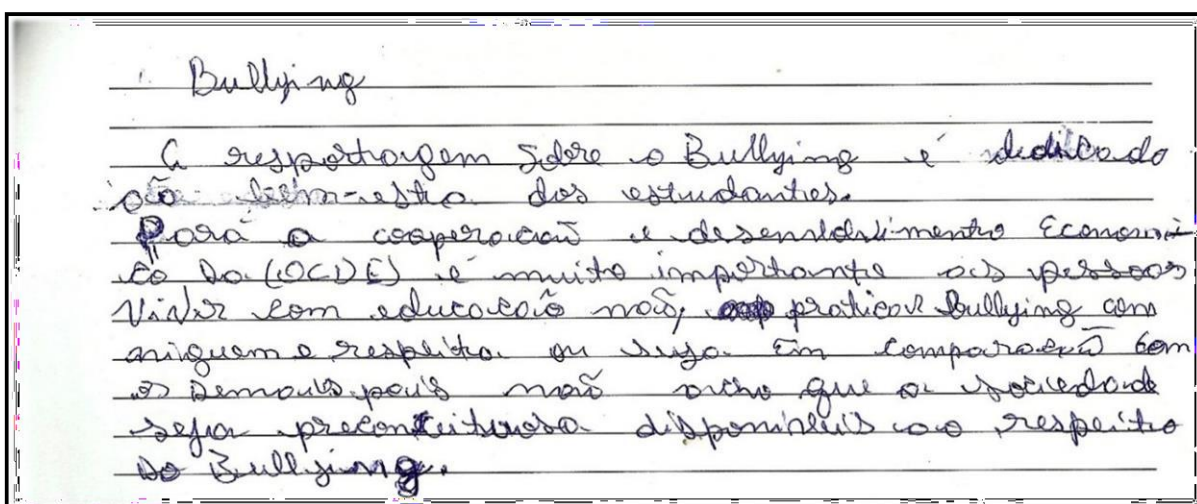 Bullying
A resportagem Sobre o Bullying é dedicado
ão bem-estra dos estudantes.
Pará a cooperacaõ e desenvidolvimento Economi
co Do (OCDE) é muito importante as pessoas
Viver com educacaõ naõ, praticar Bullying com
ninguem e respeita ou seja Em comparacaõ Com
os Demais pais naõ acho que a sociedade
seja preconceituosa disponivéis ao respeito
do Bullying.